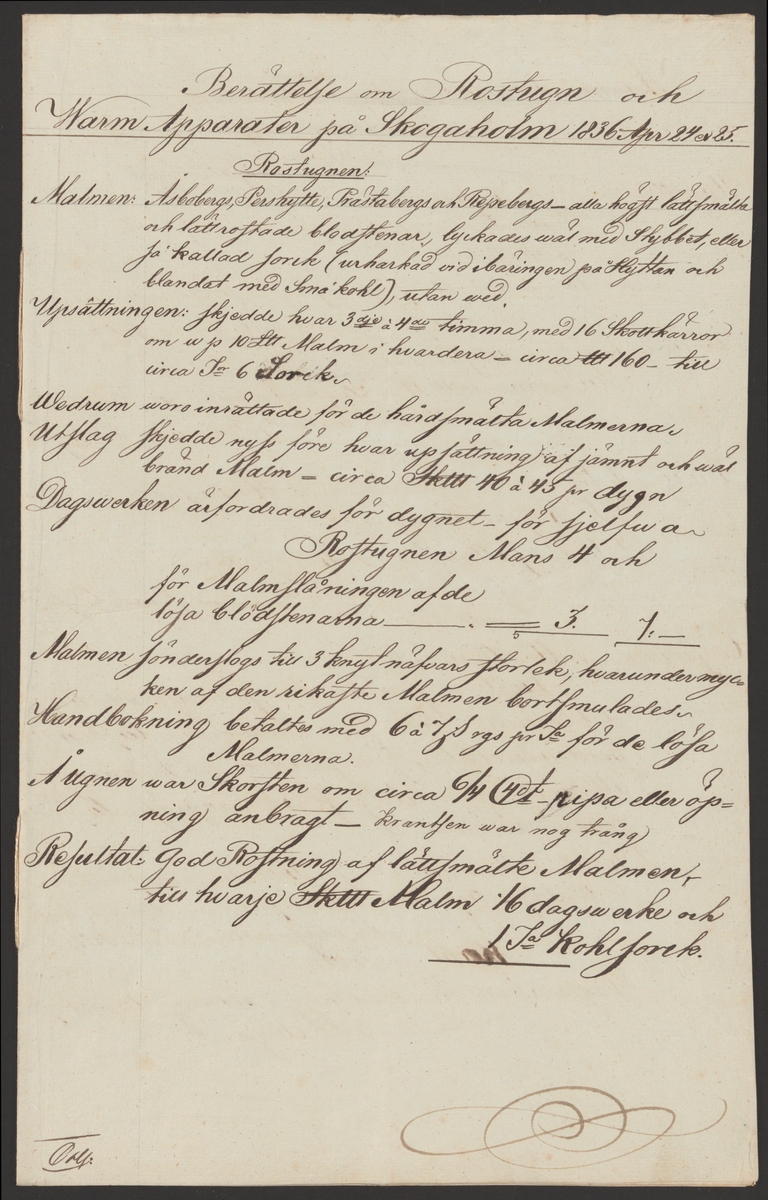 Berättelse om Rostugn och
Warm Apparater på Skogaholm 1836 Apr 24 o 25.
Rostugnen:
Malmen: Åsbobergs, Pershytte, Prästabergs och Repebergs – alla högst lättsmälta
och lättrostade blodstenar, lyckades wäl med Skybbet, eller
så kallad sorck (urharkad vid ibäringen på Hyttan och
blandat med Små kohl), utan wed.
Upsättningen: skjedde hvar 3dje à 4de timma, med 16 Skottkärror
om w p 10 Malm i hvardera = circa 160 – till
circa Tr 6 Sorck.
Wedrum woro inrättade för de hårdsmälta Malmerna.
Utslag skjedde nyss före hvar upsättning af jämnt och wäl
bränd Malm = circa 40 à 45 pr dygn
Dagswerken ärfordrades för dygnet – för sjelfwa
Rostugnen Mans 4 och
för Malmslåningen af de
lösa blödstenarna = 3. 7. –
Malmen sönderslogs till 3 knytnäfvars storlek, hvarunder myc=
ken af den rikaste Malmen bortsmulades.
Handbokning betaltes med 6 à 7 rgs pr Ta för de lösa
Malmerna.
Å ugnen war Skorsten om circa 6/4 pipa eller öp=
ning anbragt – krantsen war nog trång
Resultat: God Rostning af lättsmälte Malmen,
till hvarje Malm 1/6 dagswerke och
1 Ta Kohlsorck.